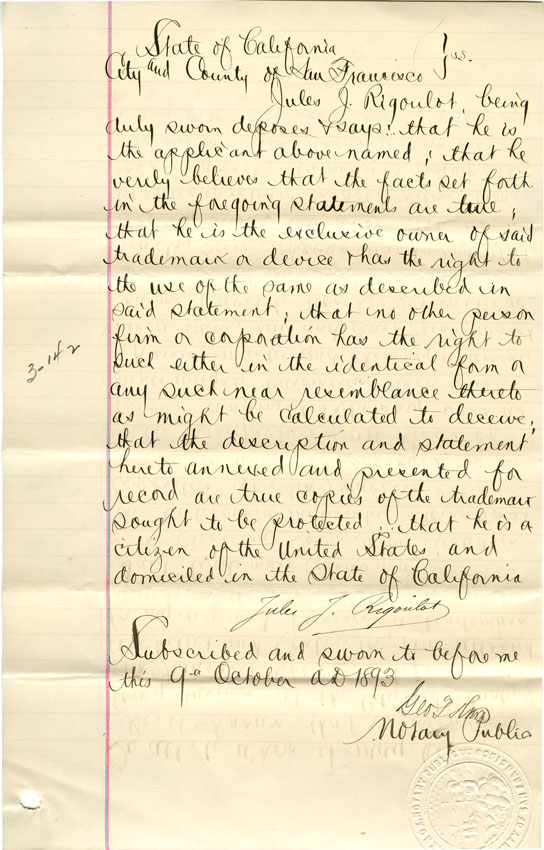 State of California
City and County of San Francisco } ss.
Jules J. Rigoulot, being
duly sworn deposes & says: that he is
the applicant above named; that he
verily believes that the facts set forth
in the foregoing statements are true;
that he is the exclusive owner of said
trademark or device & has the right to
the use of the same as described in
said statement; that no other person
firm or corporation has the right to
such either in the identical form or
any such near resemblance thereto
as might be calculated to deceive;
that the description and statement
hereto annexed and presented for
record are true copies of the trademark
sought to be protected; that he is a
citizen of the United States and
domiciled in the State of California
Jules J. Rigoulot
Subscribed and sworn to before me
this 9th October AD 1893
Geo T
Notary Public
3-142
NOTARY PUBLIC